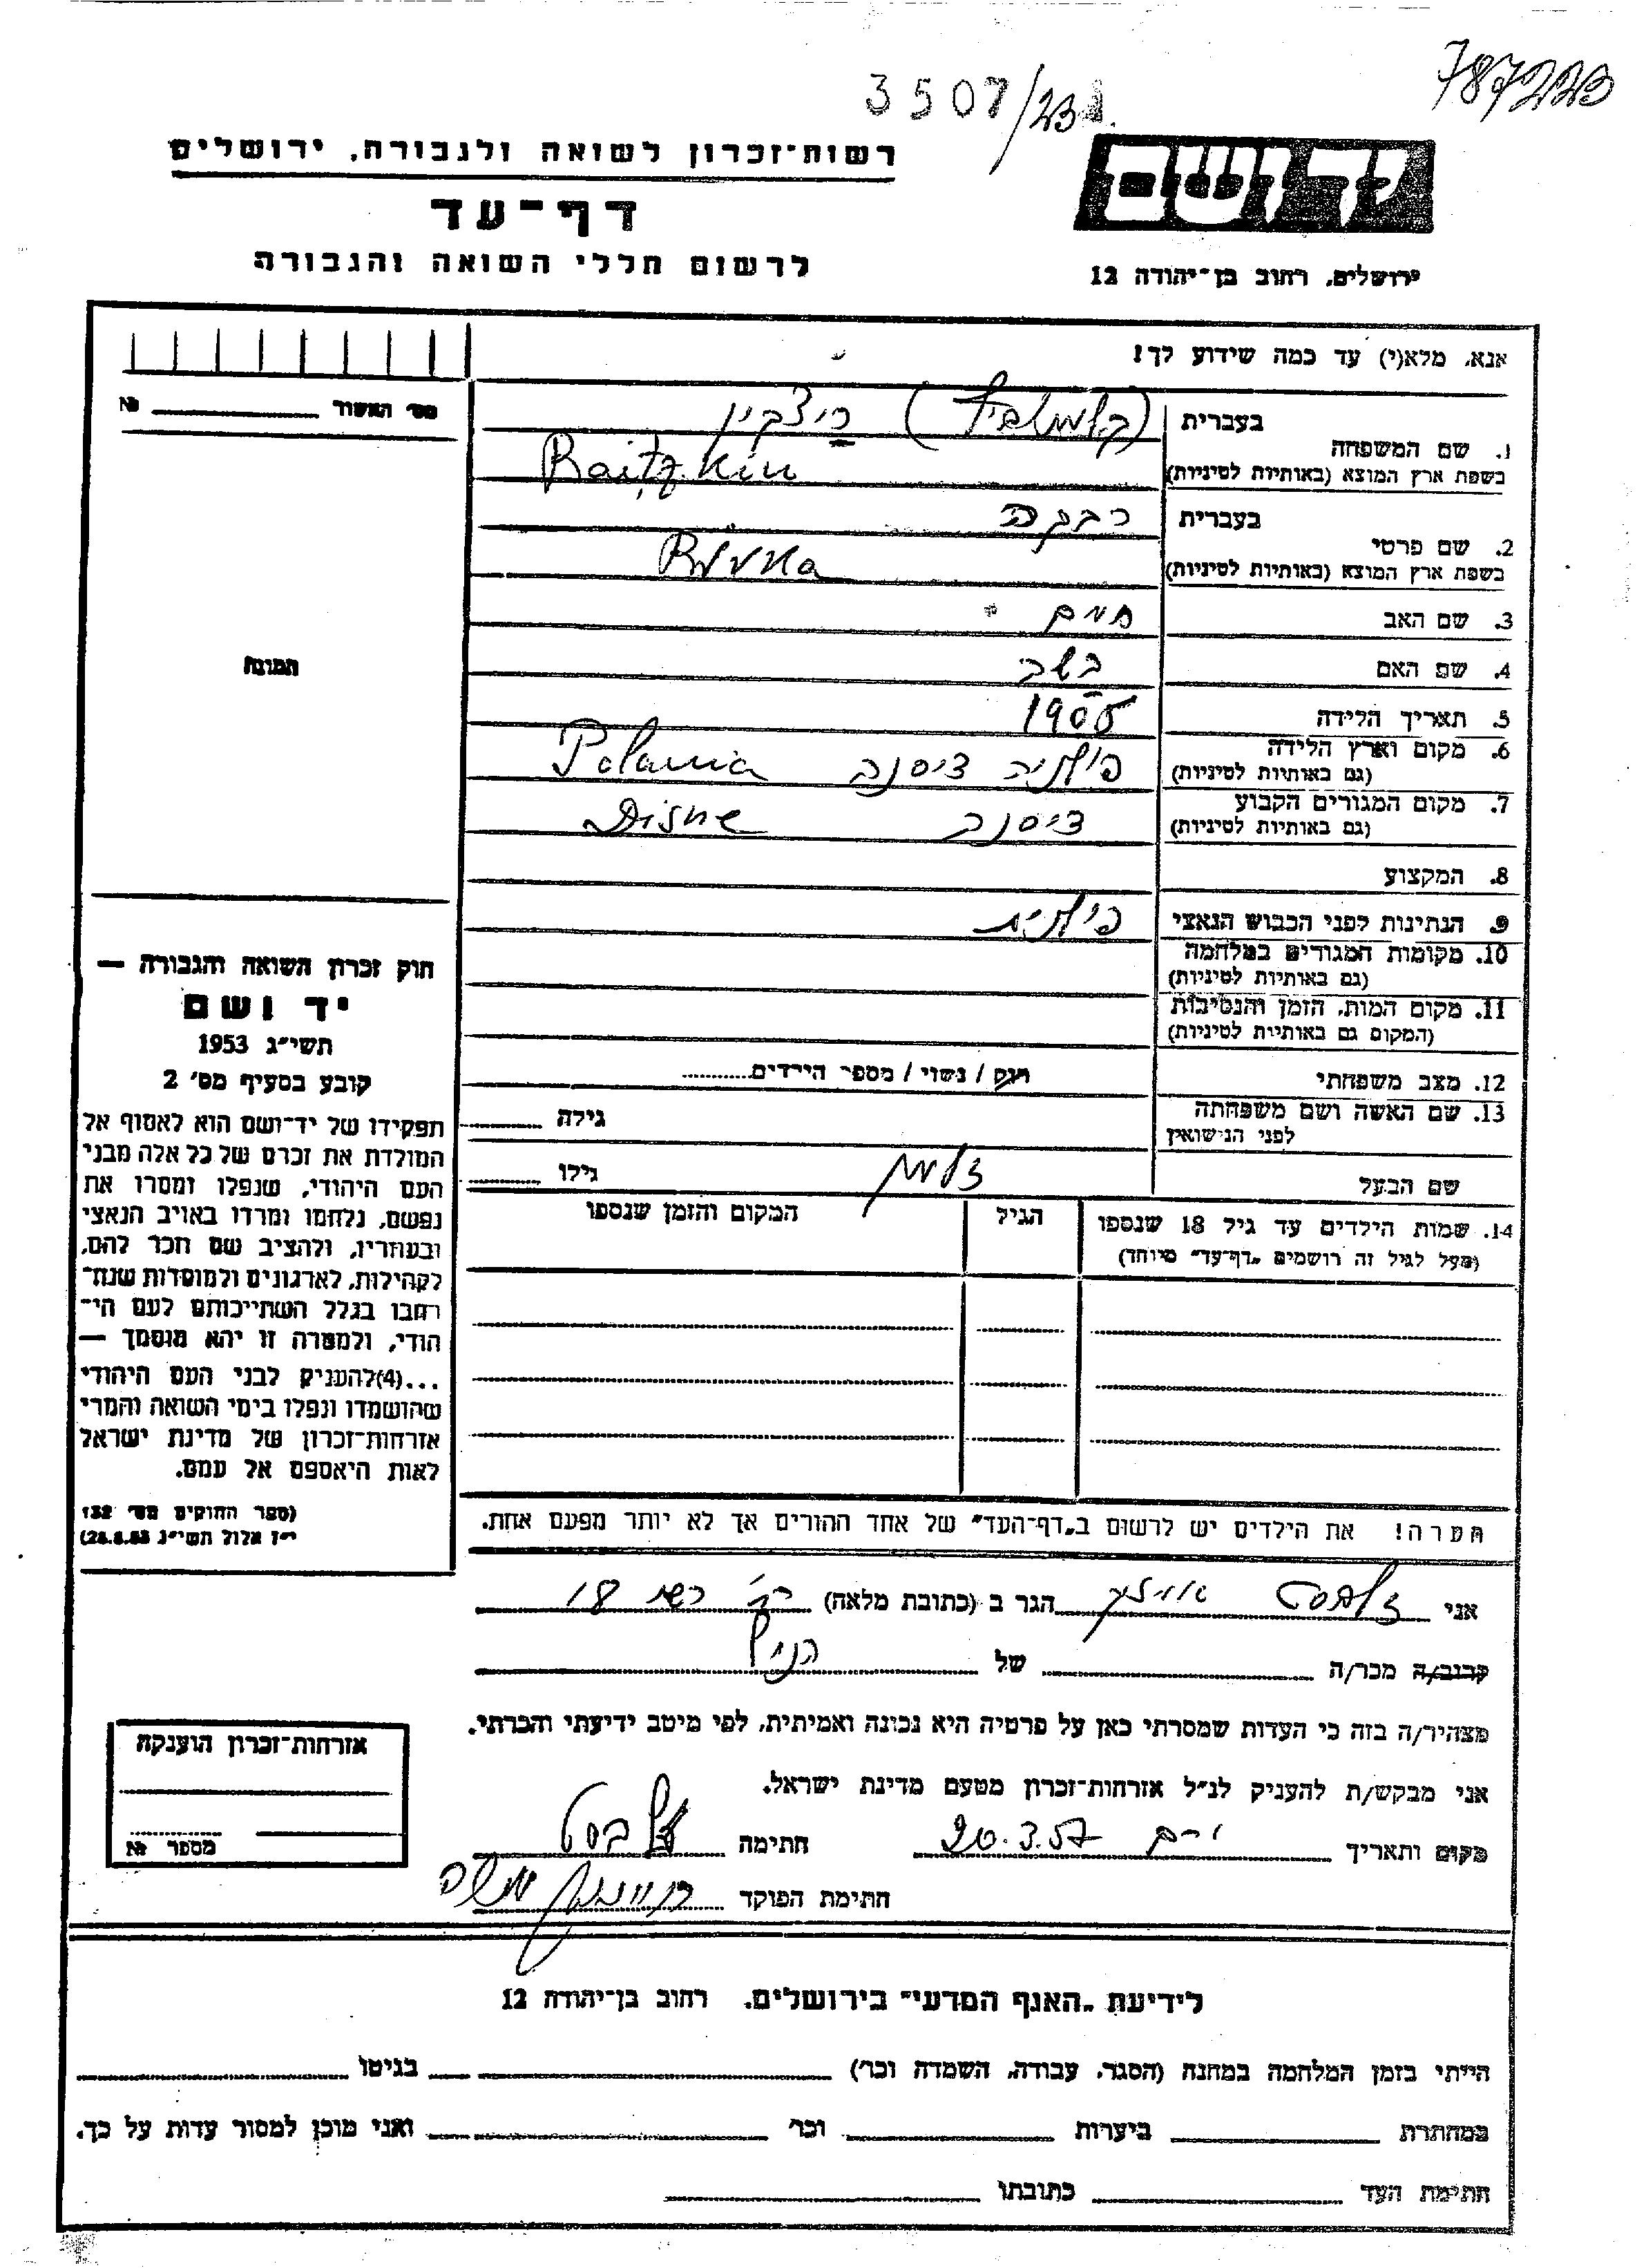 787223
3507/231.
יד ושם
ירושלים, רחוב בן־יהודה 12
רשות־זכרון לשואה ולגבורה, ירושלים
דף־עד
לרשום חללי השואה והגבורה
אנא, מלא(י) עד כמה שידוע לך!
מס' האשור №
תמונה
1. שם המשפחה
בעברית רייצקין
בשפת ארץ המוצא (באותיות לטיניות) Raitzkin
2. שם פרטי
בעברית רבקה
בשפת ארץ המוצא (באותיות לטיניות) Rivka
3. שם האב חיים
4. שם האם
5. תאריך הלידה 1905
6. מקום וארץ הלידה פולניה דיסנה Polania
(גם באותיות לטיניות)
7. מקום המגורים הקבוע דיסנה Disne
(גם באותיות לטיניות)
8. המקצוע
9. הנתינות לפני הכבוש הנאצי פולנית
10. מקומות המגורים במלחמה
(גם באותיות לטיניות)
11. מקום המות, הזמן והנסיבות
(המקום גם באותיות לטיניות)
12. מצב משפחתי רווק / נשוי / מספר הילדים
13. שם האשה ושם משפחתה גילה
לפני הנישואין
שם הבעל זלמן גילו
14. שמות הילדים עד גיל 18 שנספו הגיל המקום והזמן שנספו
(מעל לגיל זה רושמים "דף־עד" מיוחד)
חוק זכרון השואה והגבורה —
יד ושם
תשי"ג 1953
קובע בסעיף מס' 2
תפקידו של יד־ושם הוא לאסוף אל
המולדת את זכרם של כל אלה מבני
העם היהודי, שנפלו ומסרו את
נפשם, נלחמו ומרדו באויב הנאצי
ובעוזריו, ולהציב שם וזכר להם,
לקהילות, לארגונים ולמוסדות שנח־
רבו בגלל השתייכותם לעם הי־
הודי, ולמטרה זו יהא מוסמך —
...(4)להעניק לבני העם היהודי
שהושמדו ונפלו בימי השואה והמרי
אזרחות־זכרון של מדינת ישראל
לאות היאספם אל עמם.
(ספר החוקים מס' 132
י"ז אלול תשי"ג 28.8.53)
הערה! את הילדים יש לרשום ב"דף־העד" של אחד ההורים אך לא יותר מפעם אחת.
אני הגר ב (כתובת מלאה) 18
קרוב/ה מכר/ה של
מצהיר/ה בזה כי העדות שמסרתי כאן על פרטיה היא נכונה ואמיתית, לפי מיטב ידיעתי והכרתי.
אני מבקש/ת להעניק לנ"ל אזרחות־זכרון מטעם מדינת ישראל.
מקום ותאריך 20.3.57 חתימה
חתימת הפוקד
אזרחות־זכרון הוענקה
מספר №
לידיעת "האנף המדעי" בירושלים, רחוב בן־יהודה 12
הייתי בזמן המלחמה במחנה (הסגר, עבודה, השמדה וכו') בגיטו
במחתרת ביערות וכו' ואני מוכן למסור עדות על כך.
חתימת העד כתובתו